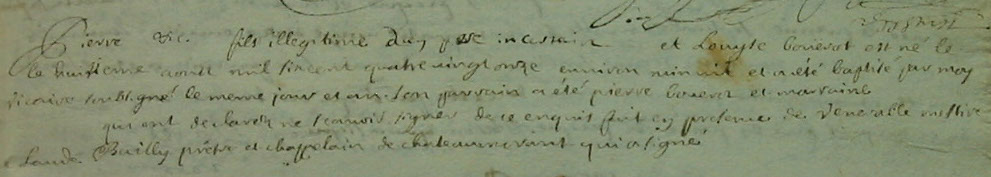 Pierre Vic. fils illegitime d'un pere incertain et Louyse bouerot est né le
le huitieme aoust mil sixcent quatrevingt onze environ minuit et a été baptisé par moy
vicaire soubsigné le meme jour et an. son parrain a été pierre bouerot et marraine
qui ont declarez ne scavoir signer de ce enquis fait en presence de venerable messire
Claude Bailly prêtre et chappelain de chateauvevant qui a signé